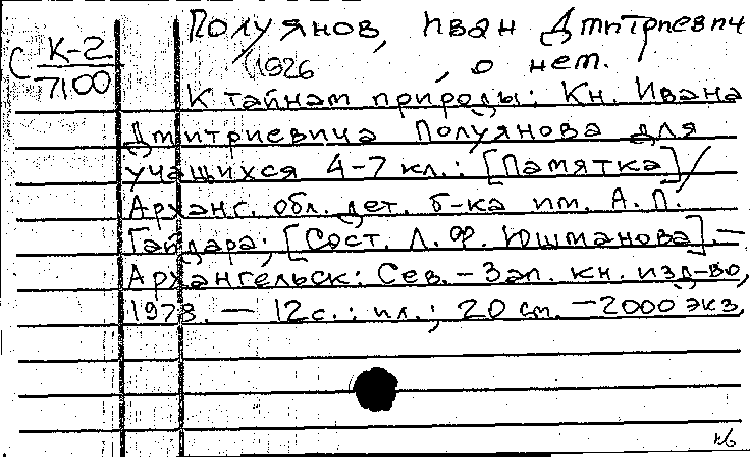 Полуянов, Иван Дмитриевич
С К-2
7100
(1926 , о нем.
К тайнам природы: Кн. Ивана
Дмитриевича Полуянова для
учащихся 4-7 кл.: [Памятка] /
Арханг. обл. дет. б-ка им. А.П.
Гайдара; [Сост. Л.Ф. Юшманова]. —
Архангельск: Сев.-Зап. кн. изд-во,
1978. — 12с.: ил.; 20 см. — 2000 экз.